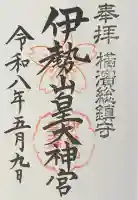 奉拝
横濱総鎮守
伊勢山皇大神宮
令和八年五月九日